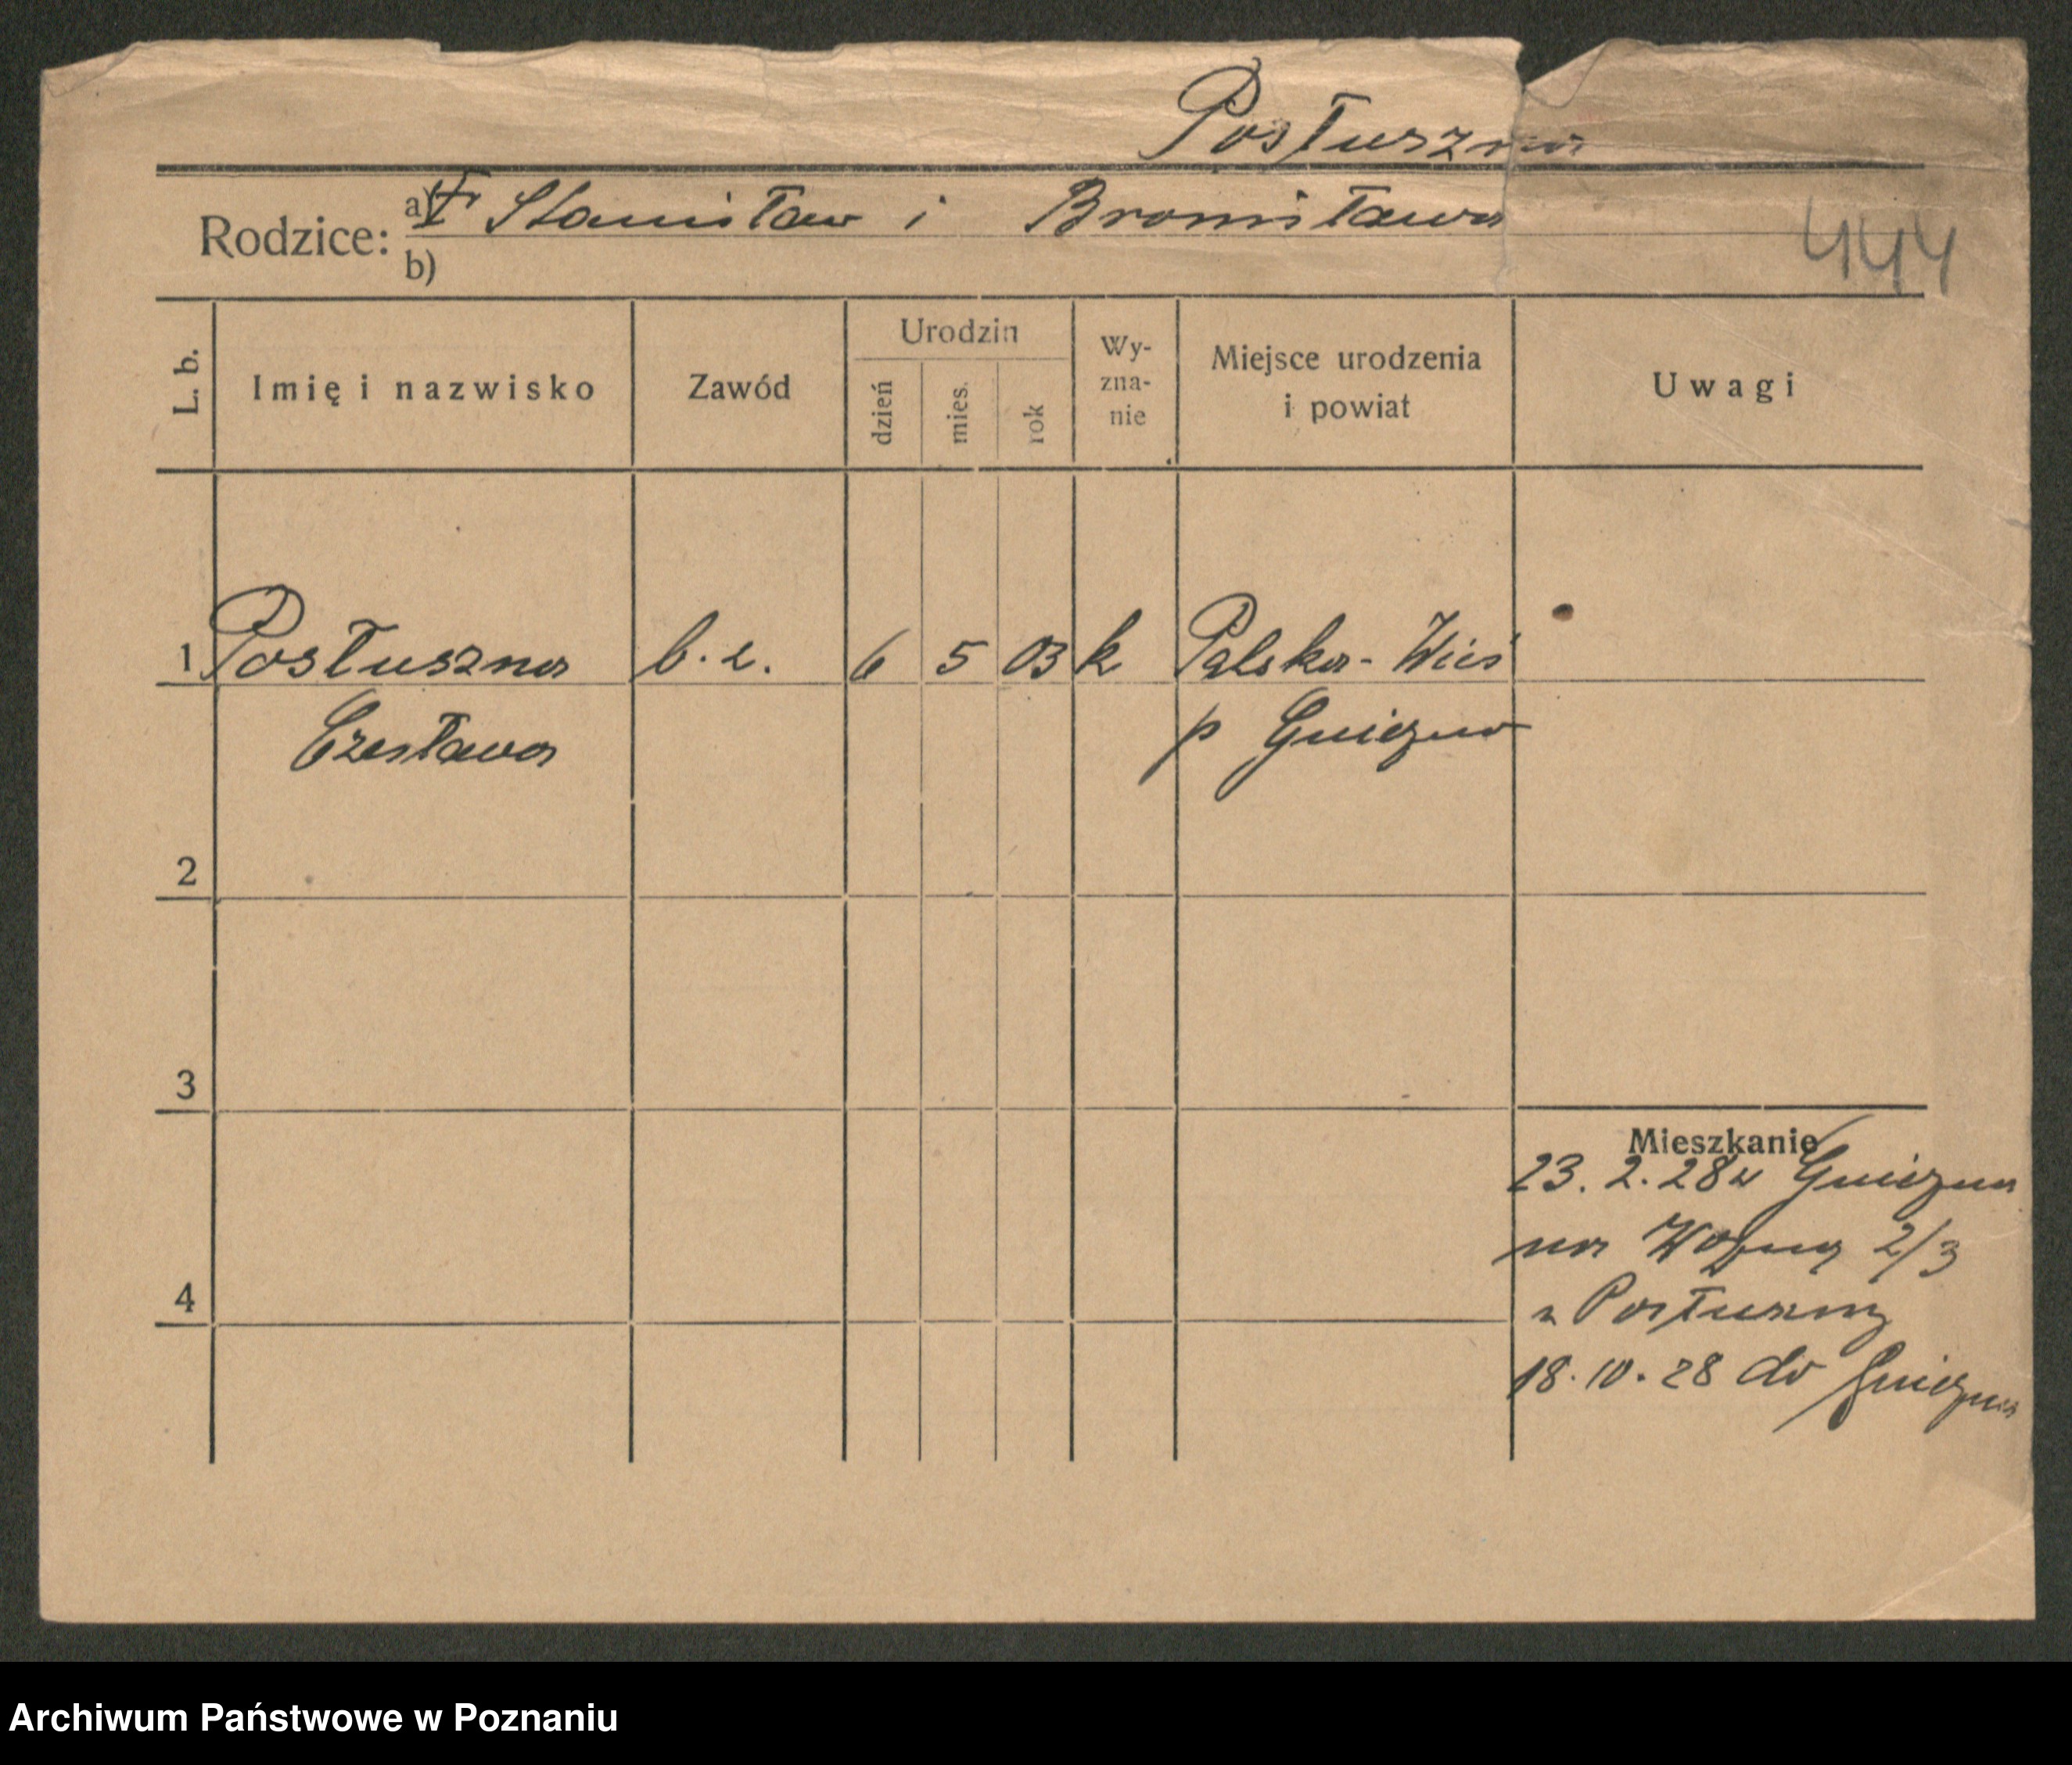 Posłuszna
Rodzice: a) Stanisław i Bronisława
b)
444
L. b.
Imię i nazwisko
Zawód
Urodzin
dzień
mies.
rok
Wy-
zna-
nie
Miejsce urodzenia
i powiat
Uwagi
1 Posłuszna b. z. 6 5 03 k Polska-Wieś
Czesława p Gniezno
2
3
Mieszkanie
23. 2. 28 z Gniezna
na Wozną 2/3
4
u Posłuszny
18. 10. 28 do Gniezna
Archiwum Państwowe w Poznaniu